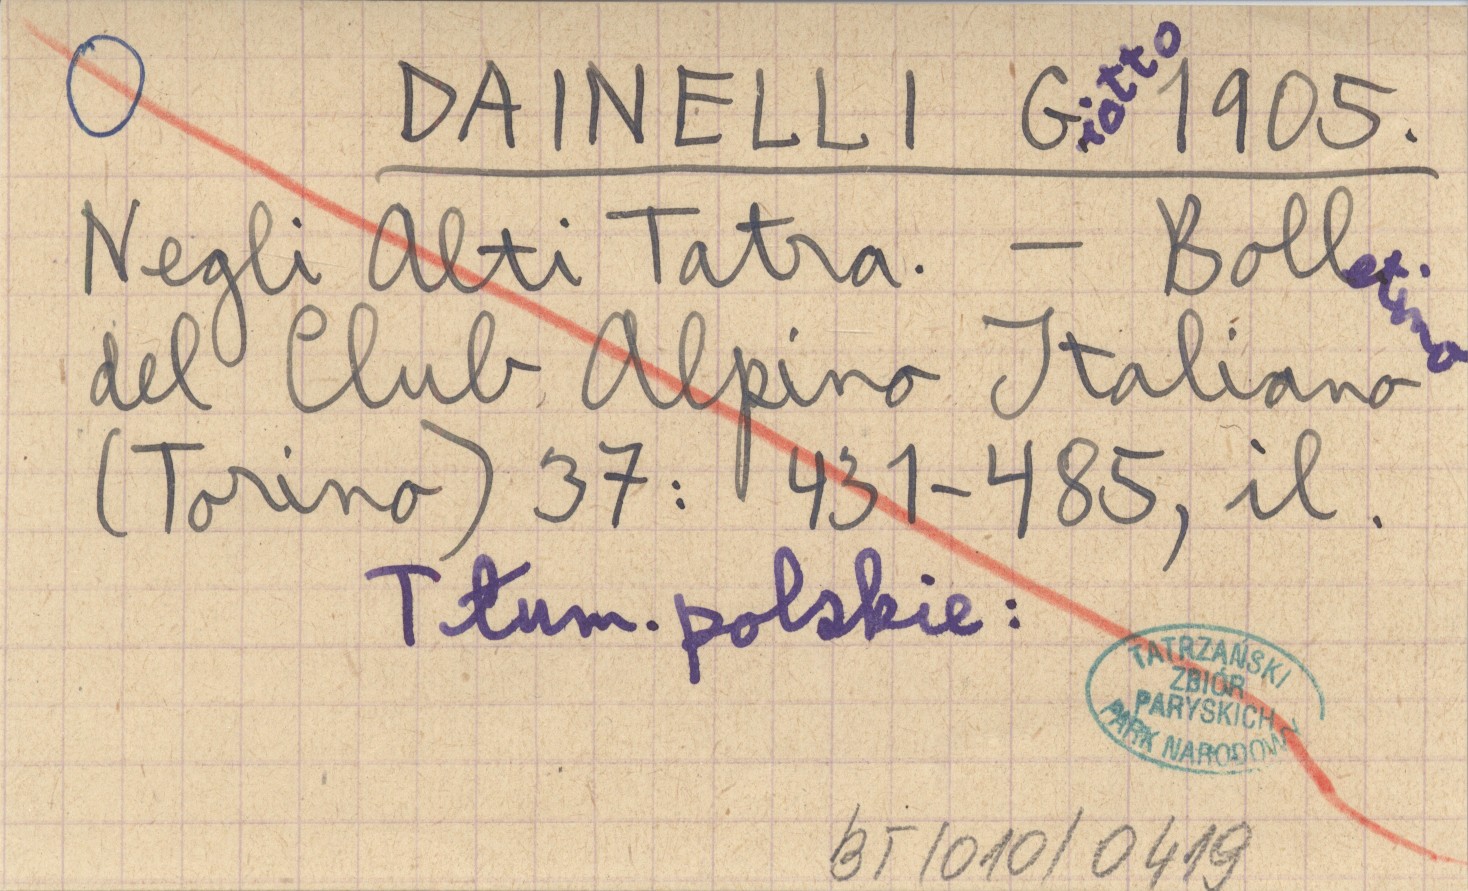 DAINELLI Giotto 1905.
Negli Alti Tatra. — Bolletino
del Club Alpino Italiano
(Torino) 37: 431-485, il.
Tłum. polskie:
TATRZAŃSKI
ZBIÓR
PARYSKICH
PARK NARODOWY
BT/010/0419